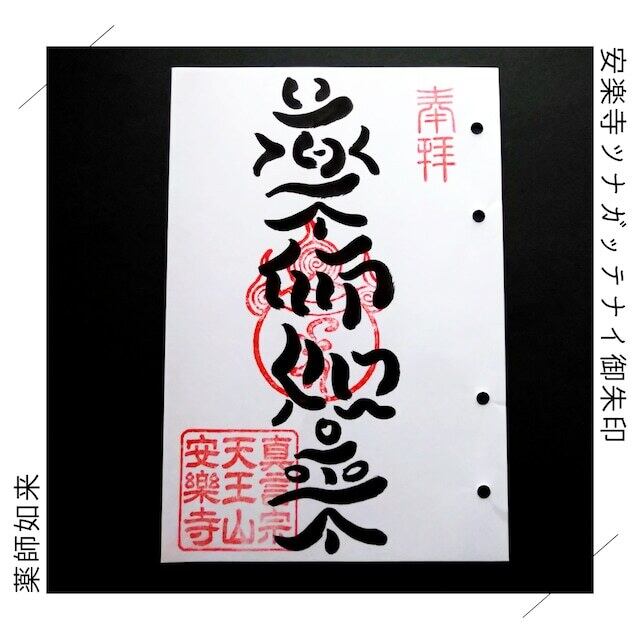 安楽寺ツナガッテナイ御朱印
奉拝
薬師如来
真言宗
天王山
安樂寺
薬師如来